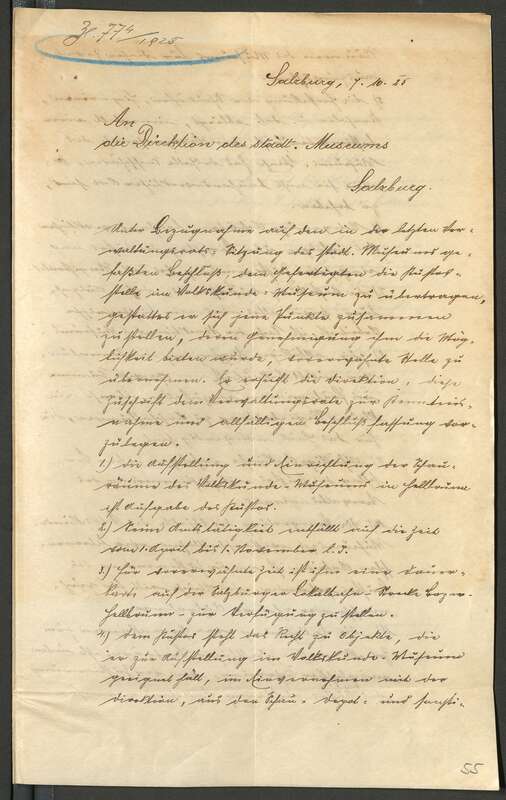 Zl. 774/1925
Salzburg, 7. 10. 25
An
die Direktion des städt. Museums
Salzburg.
Unter Bezugnahme auf den in der letzten Ver-
waltungsrats-Sitzung des städt. Museums ge-
faßten Beschluß, dem Gefertigten die Kustos-
stelle im Volkskunde-Museum zu übertragen,
gestattet er sich jene Punkte zusammen
zustellen, deren Genehmigung ihm die Mög-
lichkeit bieten würde, vorerwähnte Stelle zu
übernehmen. Er ersucht die Direktion, diese
Zuschrift dem Verwaltungsrate zur Kenntnis-
nahme und allfälligen Beschlußfassung vor-
zulegen.
1.) Die Aufstellung und Einrichtung der Schau-
räume des Volkskunde-Museums in Hellbrunn
ist Aufgabe des Kustos.
2.) Seine Amtstätigkeit entfällt auf die Zeit
vom 1. April bis 1. November l. J.
3.) Für vorerwähnte Zeit ist ihm eine Dauer-
karte auf der Salzburger Lokalbahn - Strecke
Hellbrunn - zur Verfügung zu stellen.
4.) Dem Kustos steht das Recht zu Objekte, die
er zur Aufstellung im Volkskunde-Museum
geeignet hält, im Einvernehmen mit der
Direktion, aus der Schau- Depot- und
55